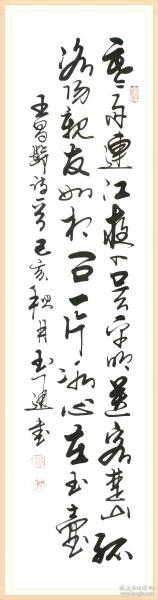 寒雨连江夜入吴平明送客楚山孤
洛阳亲友如相问一片冰心在玉壶
王昌龄诗一首己亥秋月玉进书